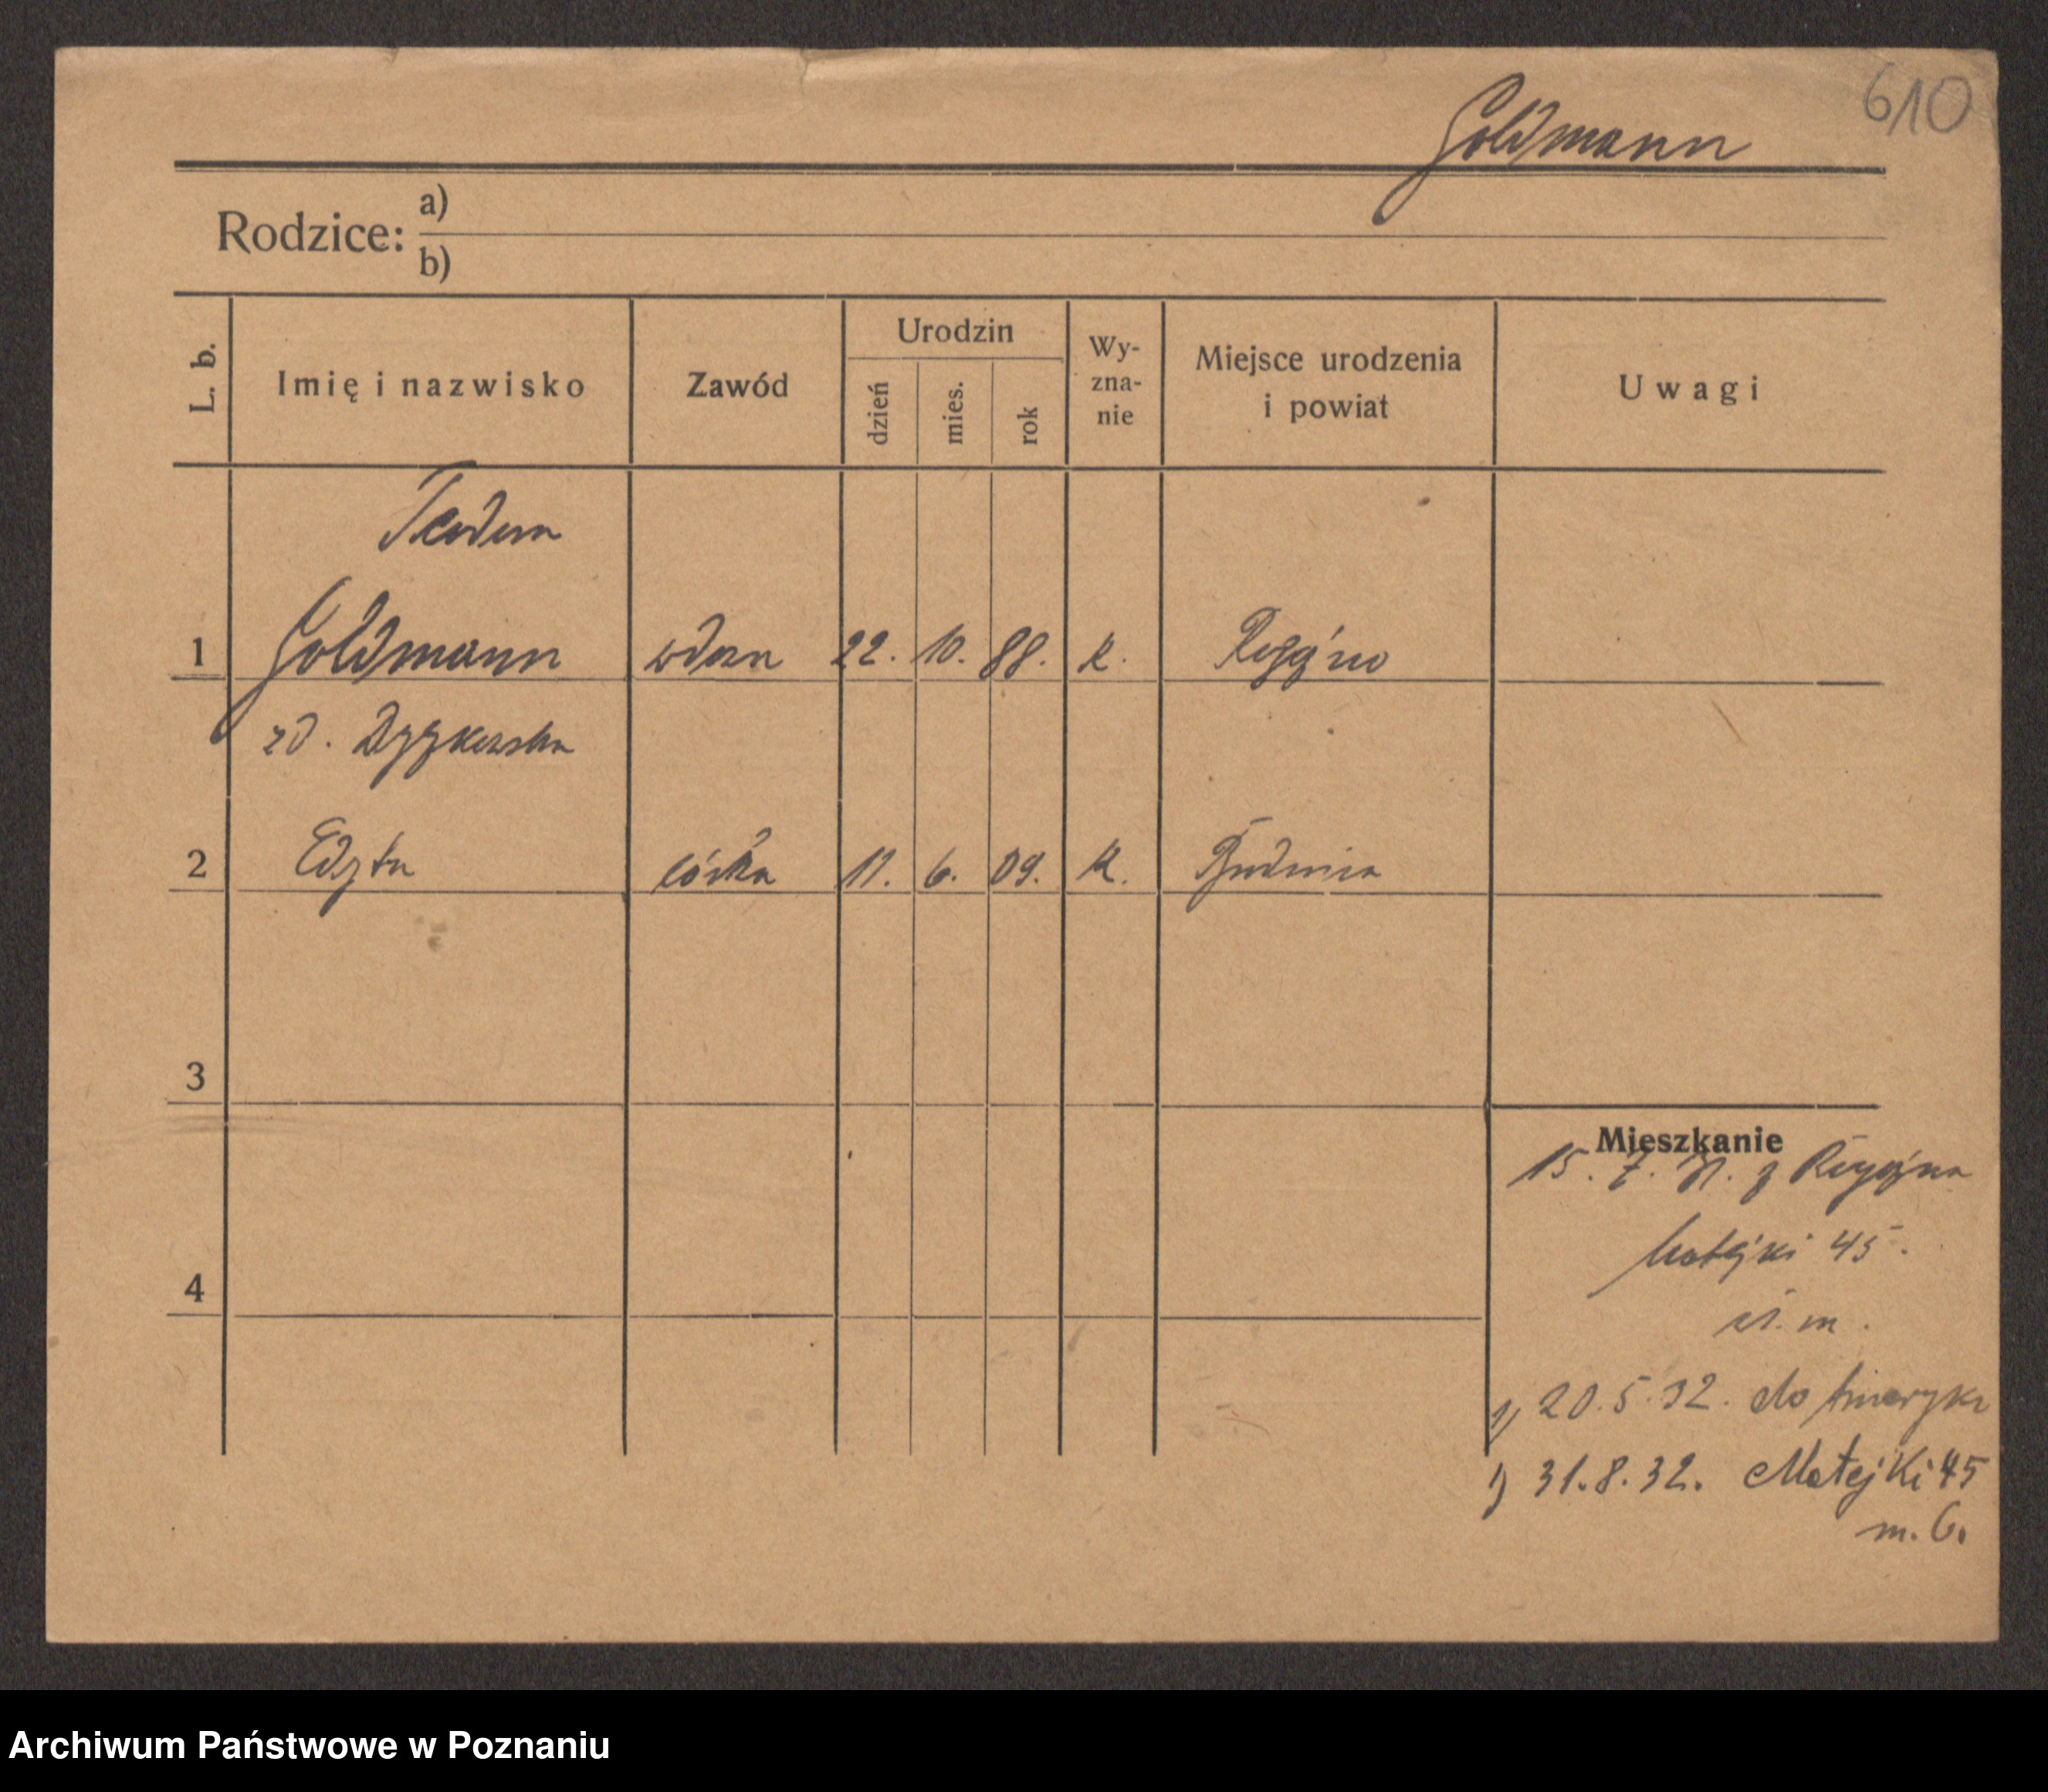 610
Goldmann
Rodzice: a)
b)
L. b. Imię i nazwisko Zawód Urodzin dzień mies. rok Wyznanie Miejsce urodzenia i powiat Uwagi
Teodora
1 Goldmann wdowa 22. 10. 88. K. Rogoźno
zd.
2 Edyta córka 11. 6. 09. K.
3
Mieszkanie
15. 7. 31. z Rogoźna
Matejki 45.
4
m.
1) 20.5.32. do Ameryki
1) 31.8.32. Matejki 45
m. 6.
Archiwum Państwowe w Poznaniu